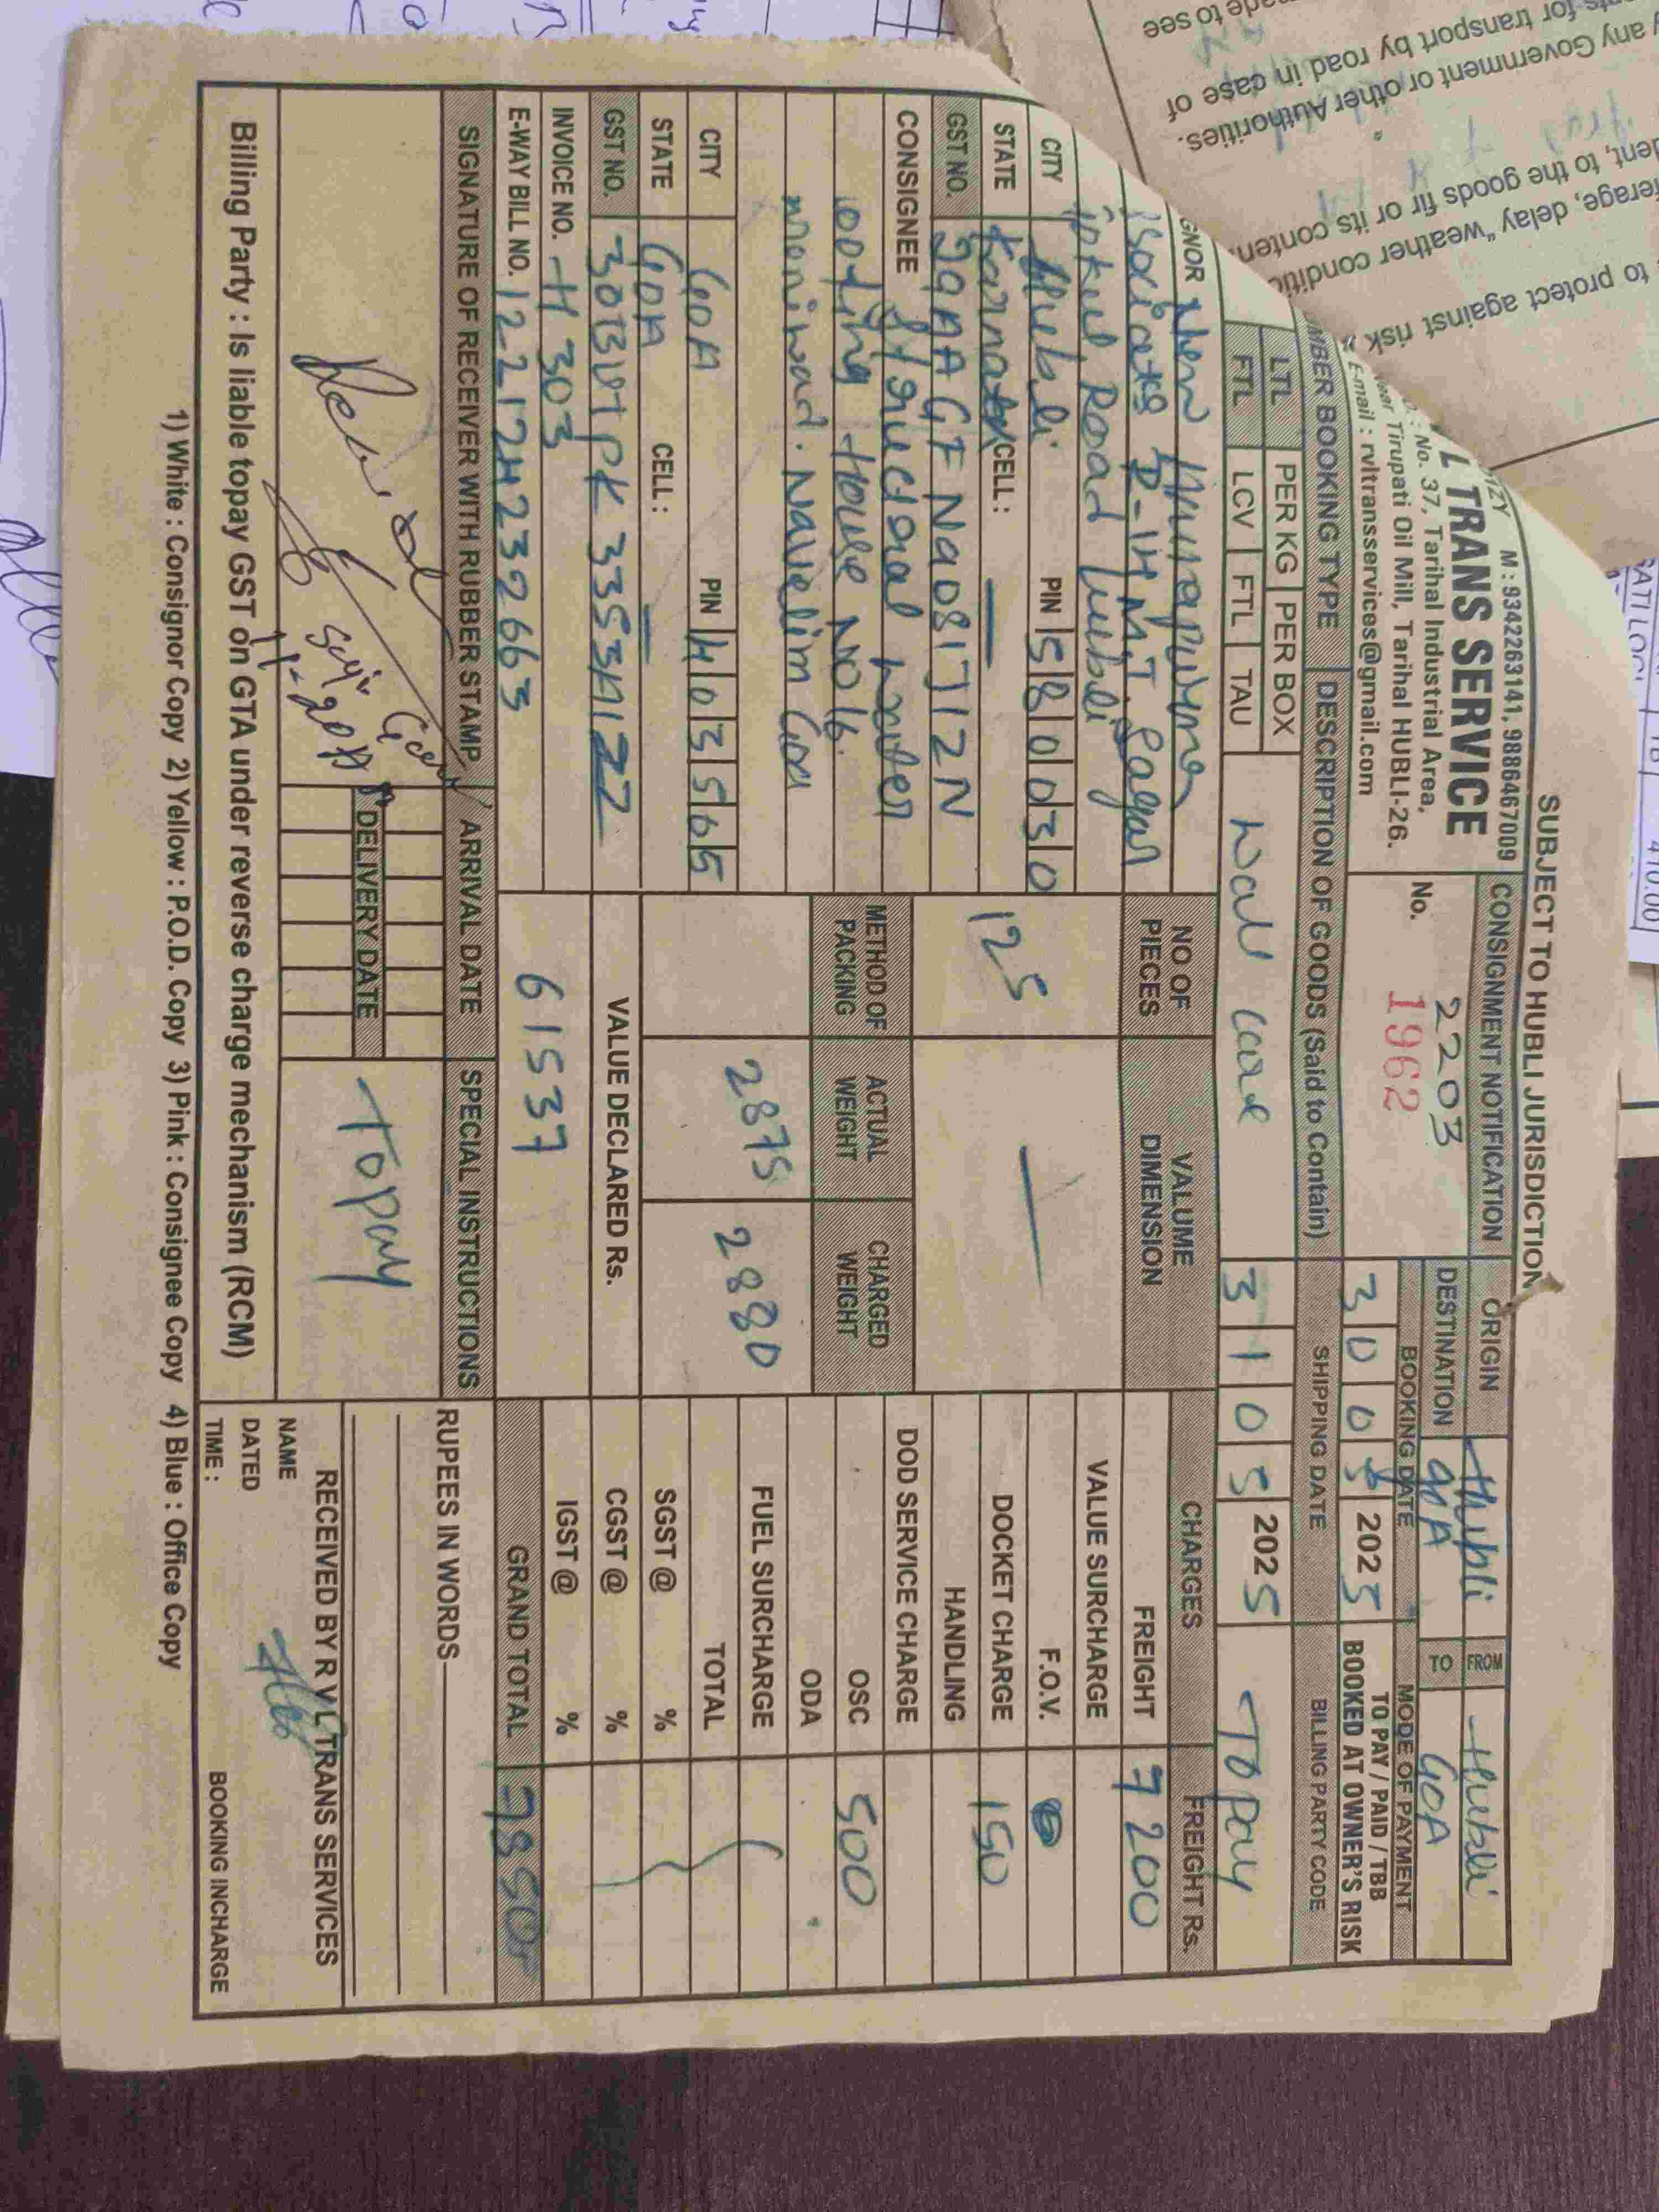 SUBJECT TO HUBLI JURISDICTION
M : 9342263141, 9886467009
L TRANS SERVICE
No. 37, Tarihal Industrial Area,
Tirupati Oil Mill, Tarihal HUBLI-26.
E-mail : rvltransservices@gmail.com
CONSIGNMENT NOTIFICATION
2203
No. 1962
ORIGIN Hubli FROM Hubli
DESTINATION GOA TO GOA
BOOKING DATE
30 05 2025
MODE OF PAYMENT
TO PAY / PAID / TBB
BOOKED AT OWNER'S RISK
MBER BOOKING TYPE
DESCRIPTION OF GOODS (Said to Contain)
SHIPPING DATE
BILLING PARTY CODE
LTL PER KG PER BOX
FTL LCV FTL TAU
wall care
31 05 2025
Topay
GNOR New Annapurna
R-14 M.T. Sagar
Road Hubli
CITY Hubli PIN 580030
STATE Karnataka CELL :
GST NO. 29AAGFN9081J1ZN
CONSIGNEE
House No 16.
Navelim Goa
CITY GOA PIN 403505
STATE GOA CELL :
GST NO.
INVOICE NO. H 303
E-WAY BILL NO. 1221724232663
NO OF PIECES
125
VALUME DIMENSION
METHOD OF PACKING
ACTUAL WEIGHT
2875
CHARGED WEIGHT
2880
VALUE DECLARED Rs.
61537
CHARGES FREIGHT Rs.
FREIGHT 7200
VALUE SURCHARGE
F.O.V.
DOCKET CHARGE 150
HANDLING
DOD SERVICE CHARGE
OSC 500
ODA
FUEL SURCHARGE
TOTAL
SGST @ %
CGST @ %
IGST @ %
GRAND TOTAL 7850
SIGNATURE OF RECEIVER WITH RUBBER STAMP
ARRIVAL DATE
DELIVERY DATE
SPECIAL INSTRUCTIONS
Topay
RUPEES IN WORDS
RECEIVED BY R V L TRANS SERVICES
NAME
DATED
TIME :
BOOKING INCHARGE
Billing Party : Is liable topay GST on GTA under reverse charge mechanism (RCM)
1) White : Consignor Copy 2) Yellow : P.O.D. Copy 3) Pink : Consignee Copy 4) Blue : Office Copy
made to see
for transport by road in case of
any Government or other Authorities.
to the goods or fir or its conten
delay "weather conditio
to protect against risk
410.00